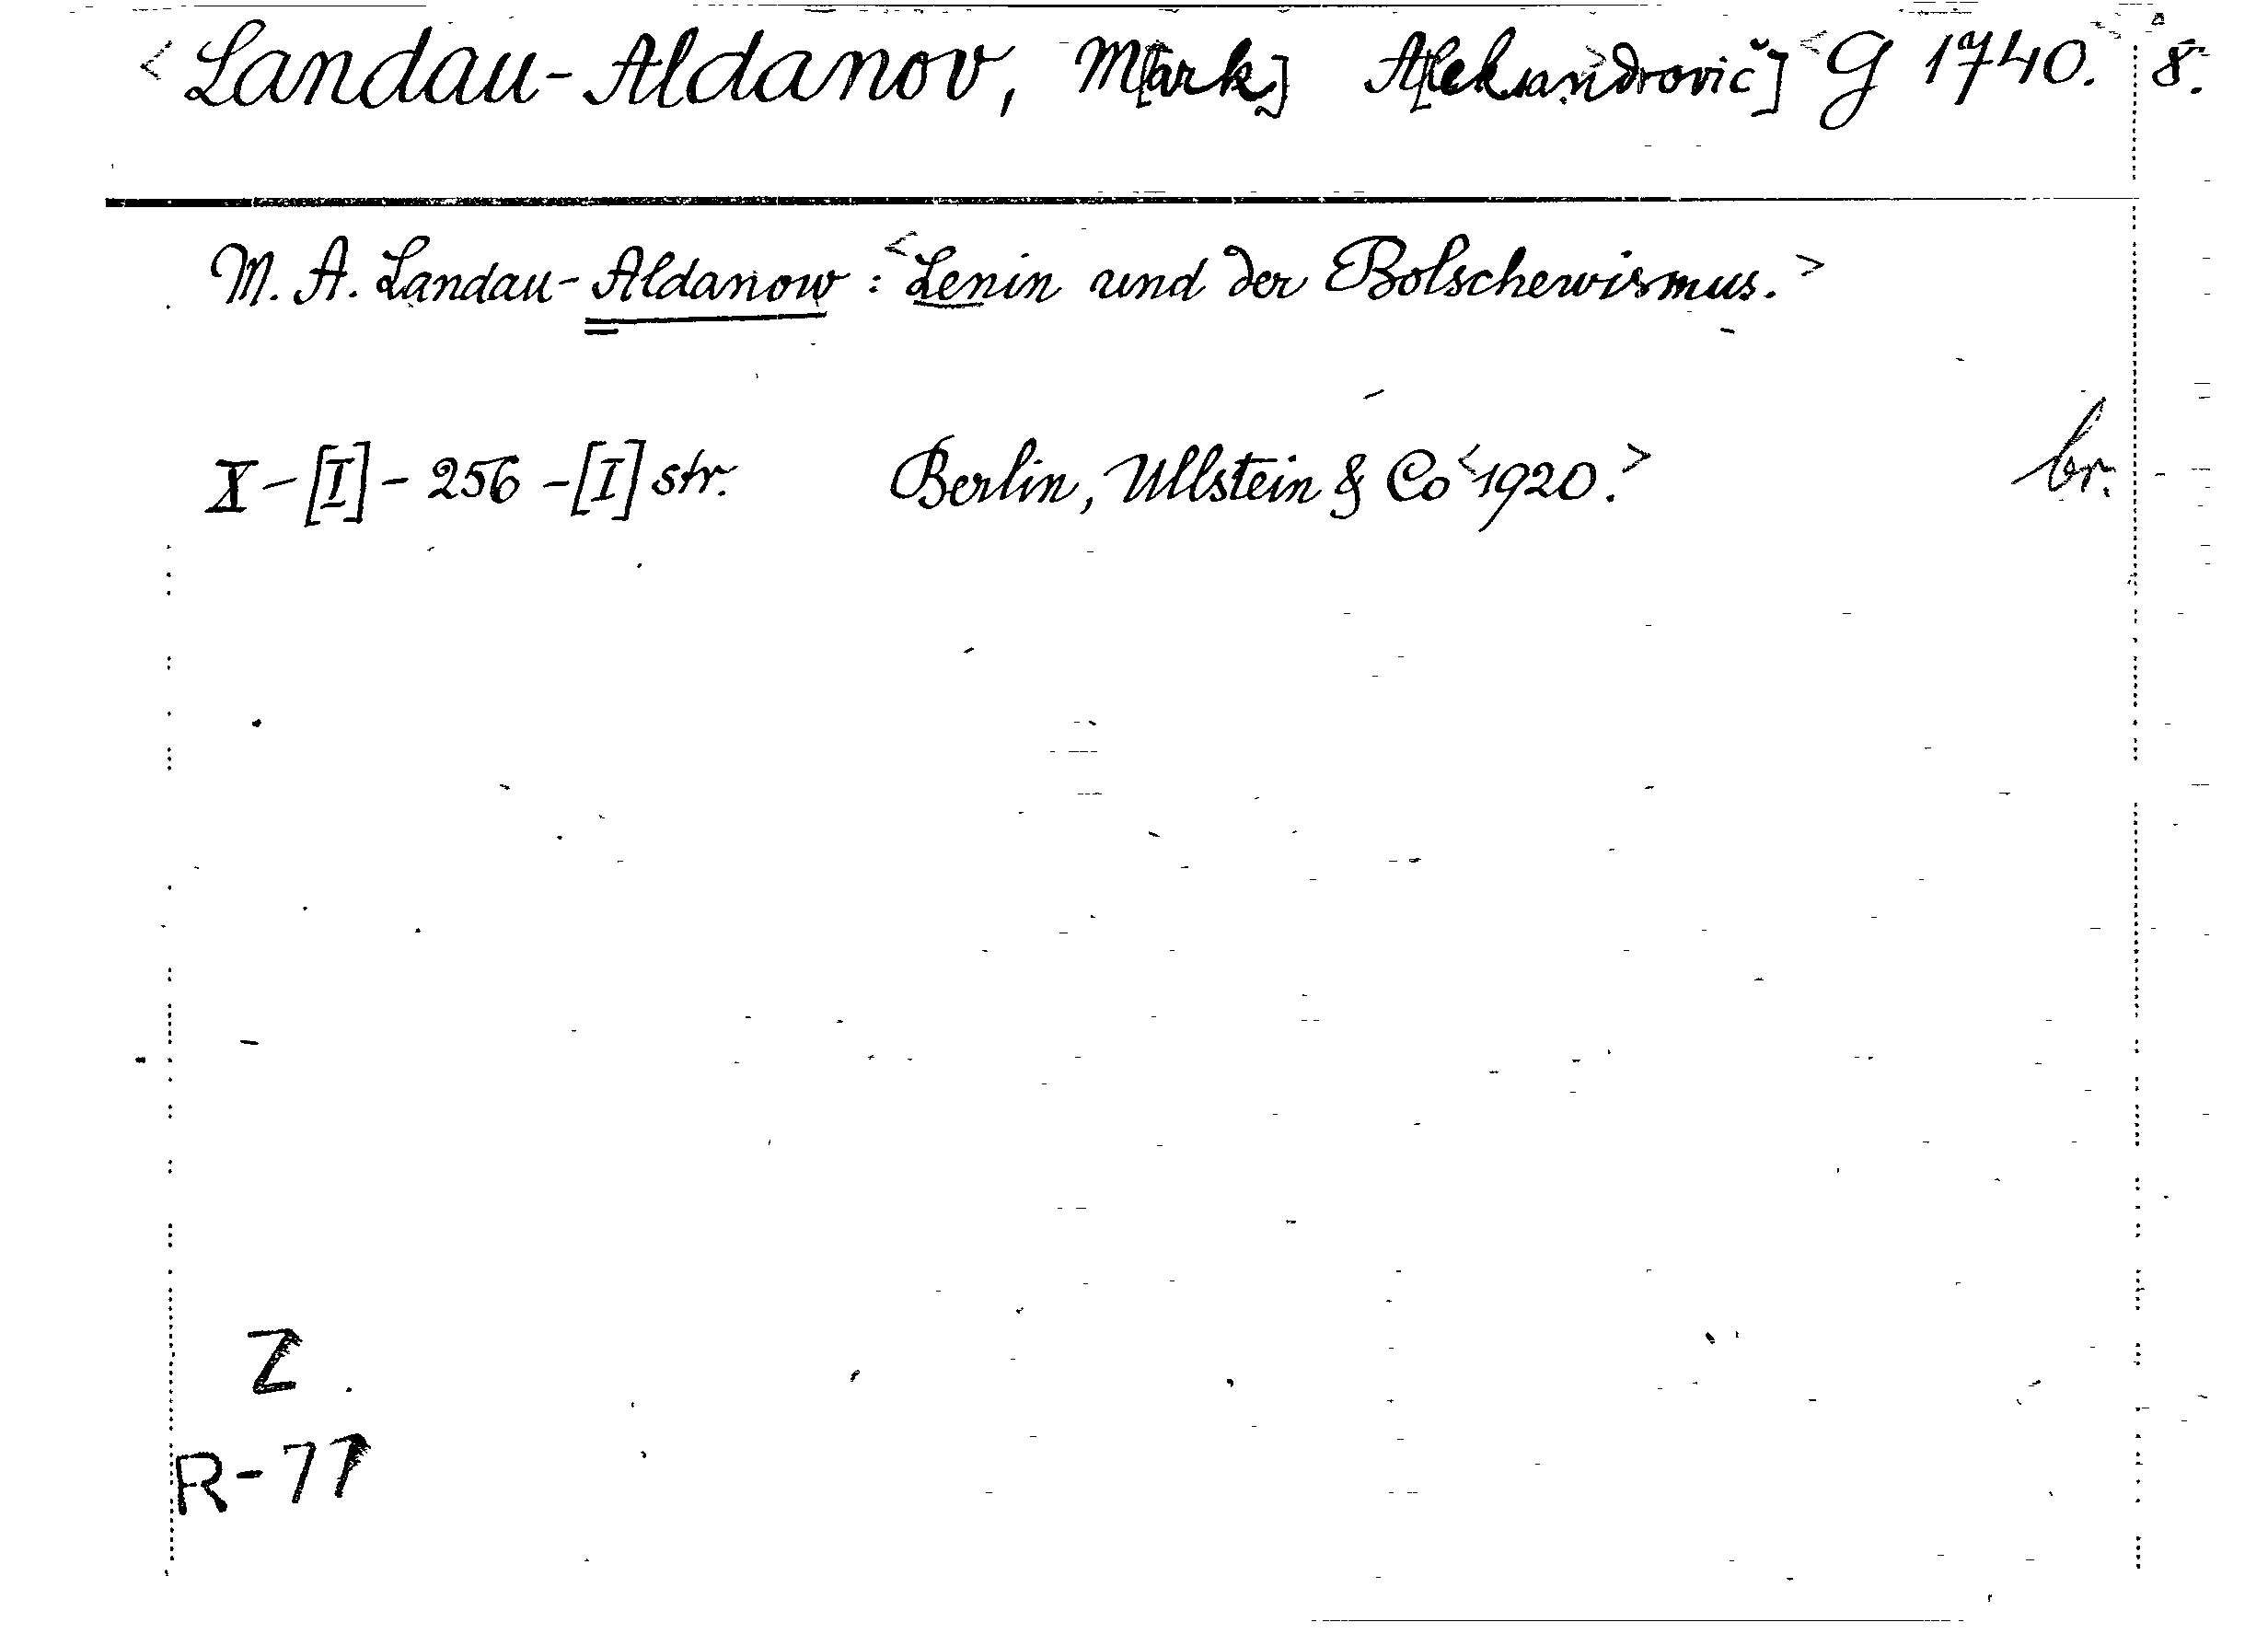 <Landau-Aldanov, M[ark] A[leksandrovič]> <G 1740.> 8.
M. A. Landau-Aldanow: <Lenin und der Bolschewismus.>
X-[I]-256-[I] str. Berlin, Ullstein & Co <1920.> br.
Z
R-77